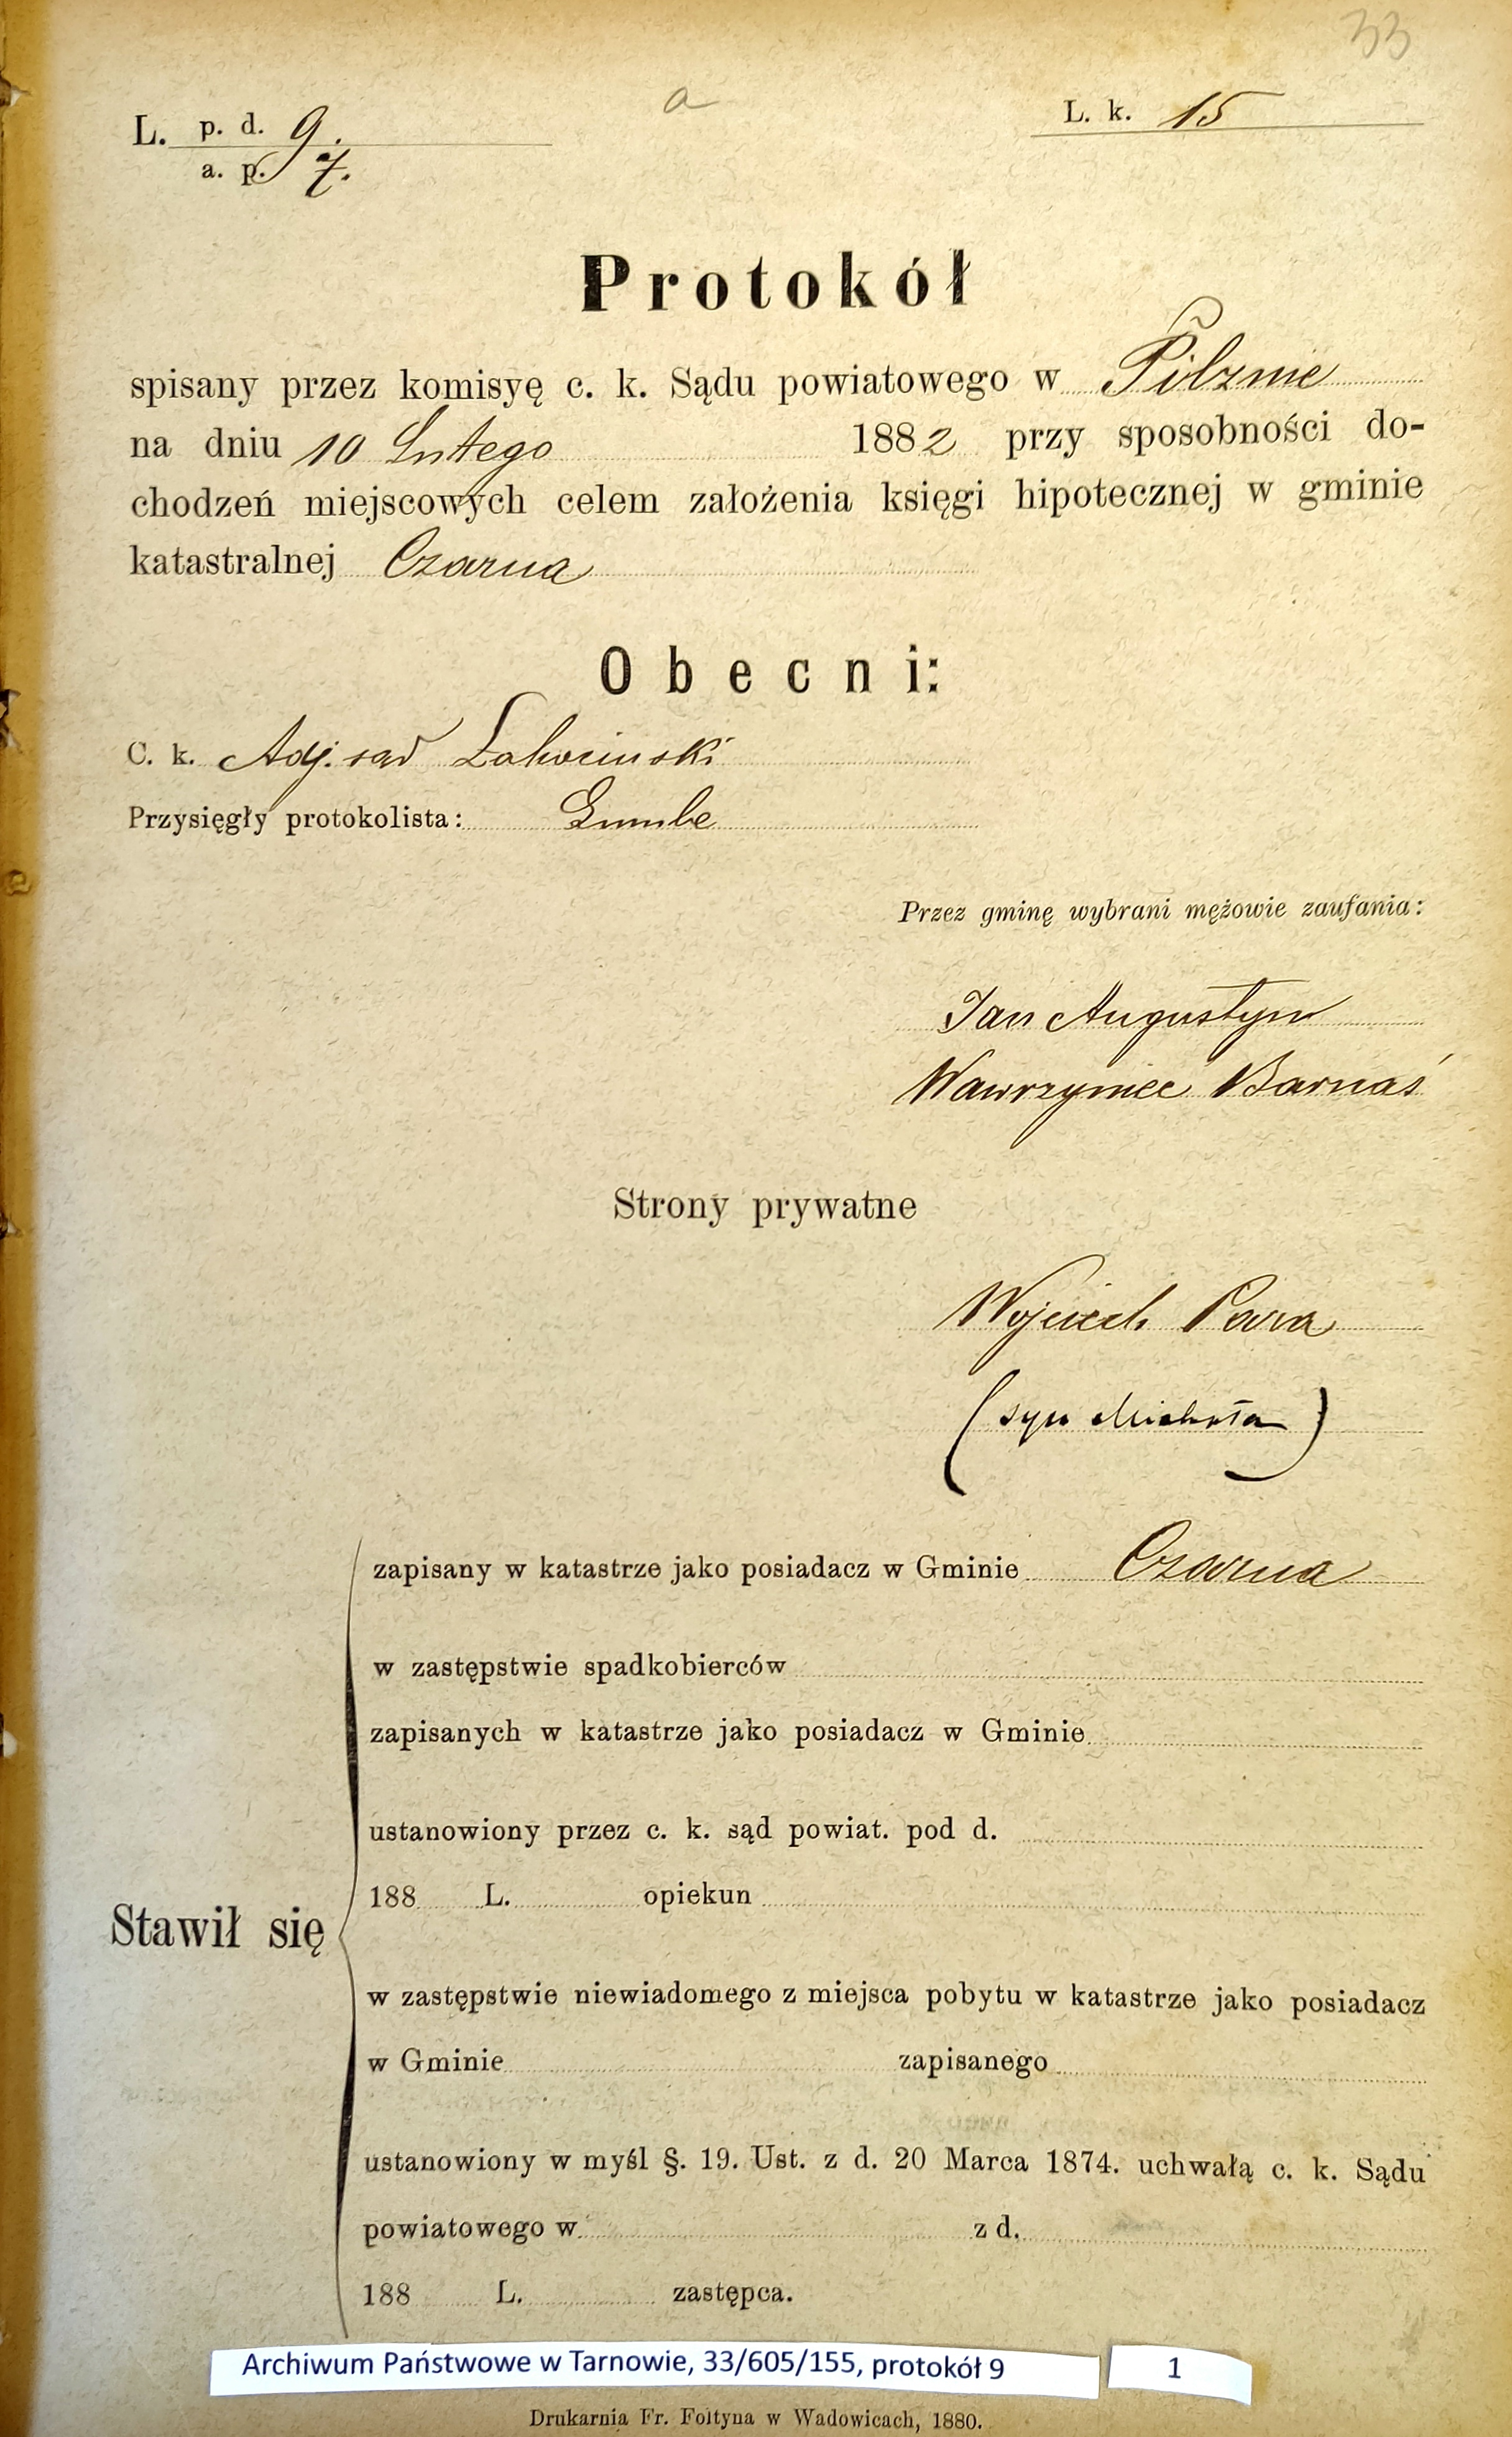 33
L. p. d. 9.
a. p. 7.
a
L. k. 15
Protokół
spisany przez komisyę c. k. Sądu powiatowego w Pilznie
na dniu 10 Lutego 1882 przy sposobności do-
chodzeń miejscowych celem założenia księgi hipotecznej w gminie
katastralnej Czarna
Obecni:
C. k. Adj. sąd
Przysięgły protokolista:
Przez gminę wybrani mężowie zaufania:
Jan Augustyn
Wawrzyniec Barnaś
Strony prywatne
Wojciech Para
(syn Michała)
zapisany w katastrze jako posiadacz w Gminie Czarna
w zastępstwie spadkobierców
zapisanych w katastrze jako posiadacz w Gminie
ustanowiony przez c. k. sąd powiat. pod d.
188 L. opiekun
Stawił się
w zastępstwie niewiadomego z miejsca pobytu w katastrze jako posiadacz
w Gminie zapisanego
ustanowiony w myśl §. 19. Ust. z d. 20 Marca 1874. uchwałą c. k. Sądu
powiatowego w z d.
188 L. zastępca.
Archiwum Państwowe w Tarnowie, 33/605/155, protokół 9
1
Drukarnia Fr. Foltyna w Wadowicach, 1880.